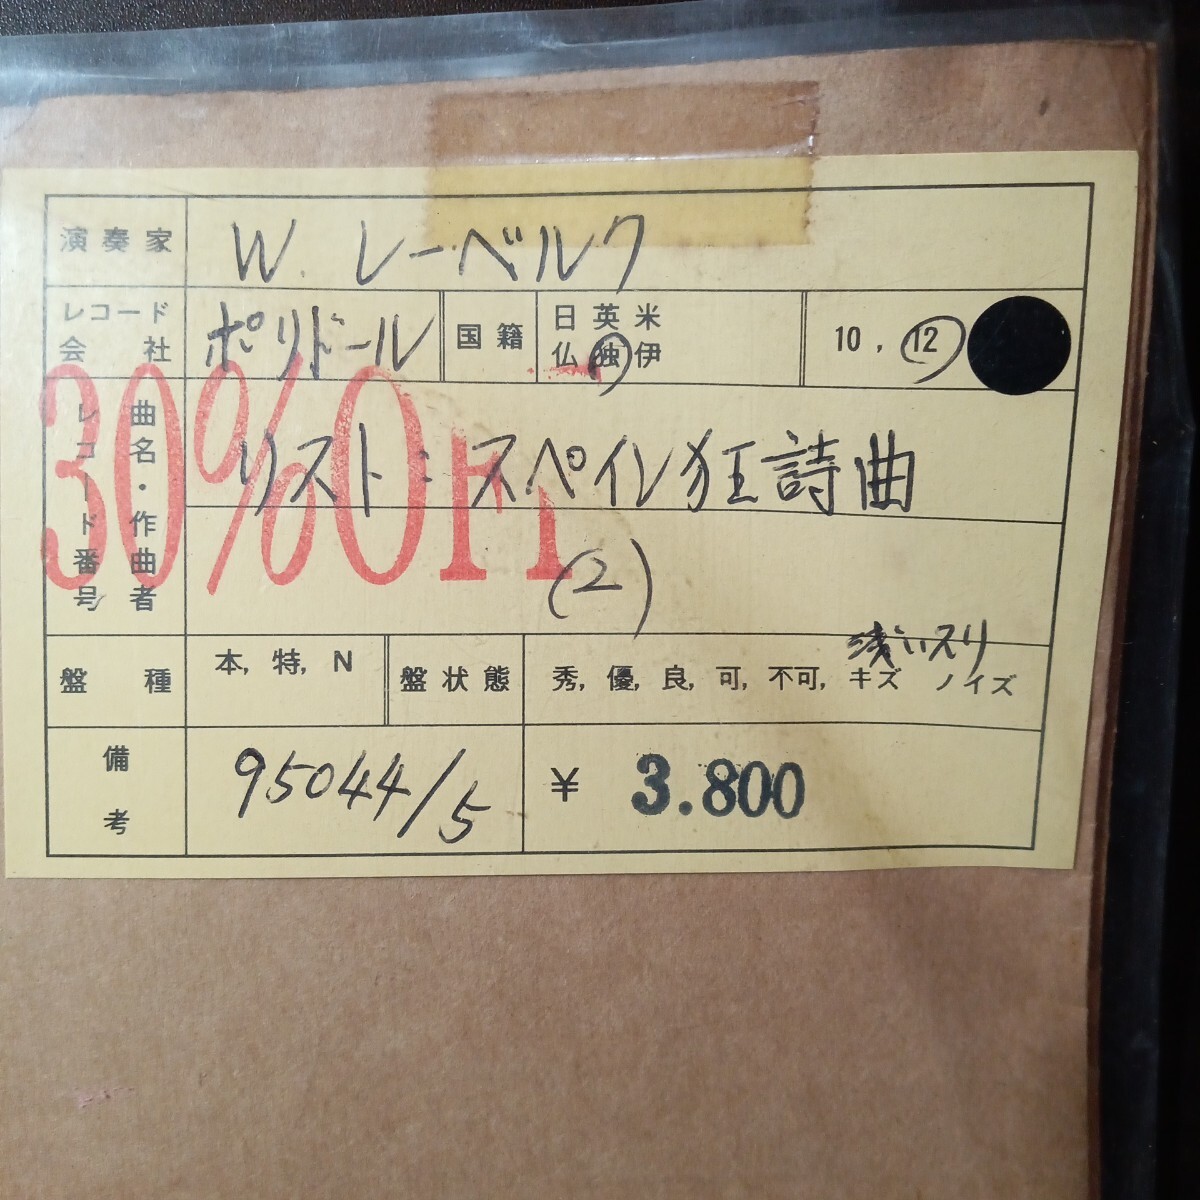 演奏家 W. レーベルク
レコード会社 ポリドール 国籍 日 英 米 仏 独 伊 10, 12
曲名・作曲者 レコード番号 リスト: スペイン狂詩曲
30%OFF
(2)
盤種 本, 特, N 盤状態 秀, 優, 良, 可, 不可, キズ ノイズ
浅いスリ
備考 95044/5 ¥ 3.800